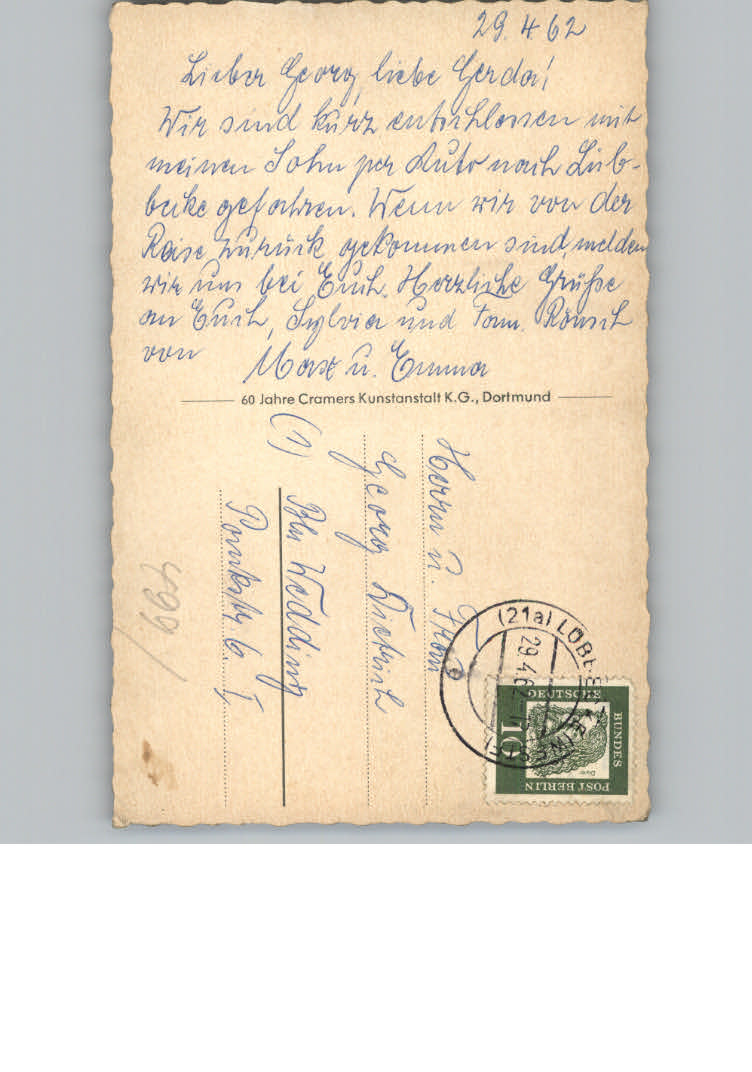 29.4.62
Lieber Georg, liebe Gerda!
Wir sind kurz entschlossen mit
meinen Sohn per Auto nach Lüb-
becke gefahren. Wenn wir von der
Reise zurück gekommen sind, melden
wir uns bei Euch. Herzliche Grüße
an Euch, Sylvia und Fam. Rönsch
von Max u. Emma
60 Jahre Cramers Kunstanstalt K.G., Dortmund
Herrn u. Frau
Georg Dietrich
(1) Bln Wedding
Pankstr. 6. I
(21a) LÜBBECKE (WESTF)
29.4.62
e
DEUTSCHE
BUNDES
POST BERLIN
10
Dürer